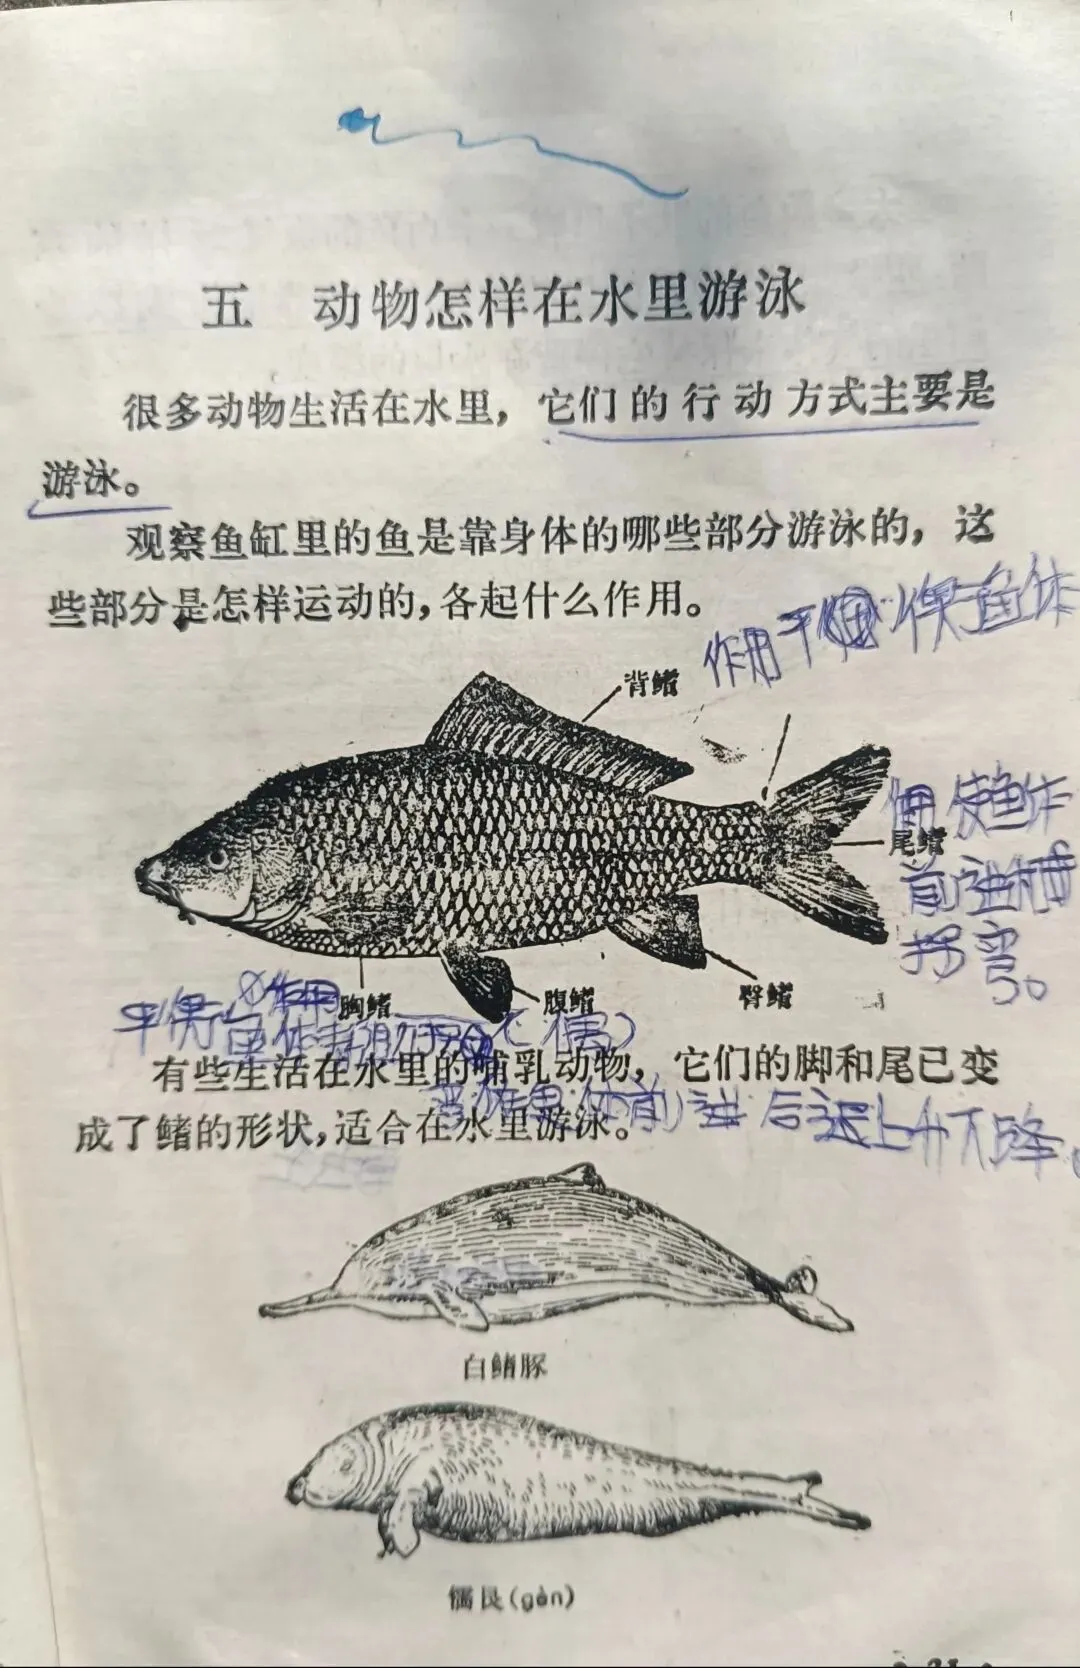 五 动物怎样在水里游泳
很多动物生活在水里，它们的行动方式主要是
游泳。
观察鱼缸里的鱼是靠身体的哪些部分游泳的，这
些部分是怎样运动的，各起什么作用。
作用平 保鱼体
背鳍
使鱼体
尾鳍
前进
拐弯。
作用
胸鳍
腹鳍
臀鳍
有些生活在水里的哺乳动物，它们的脚和尾已变
鱼体前进 后退上升下降。
成了鳍的形状，适合在水里游泳。
白鳍豚
儒艮(gèn)